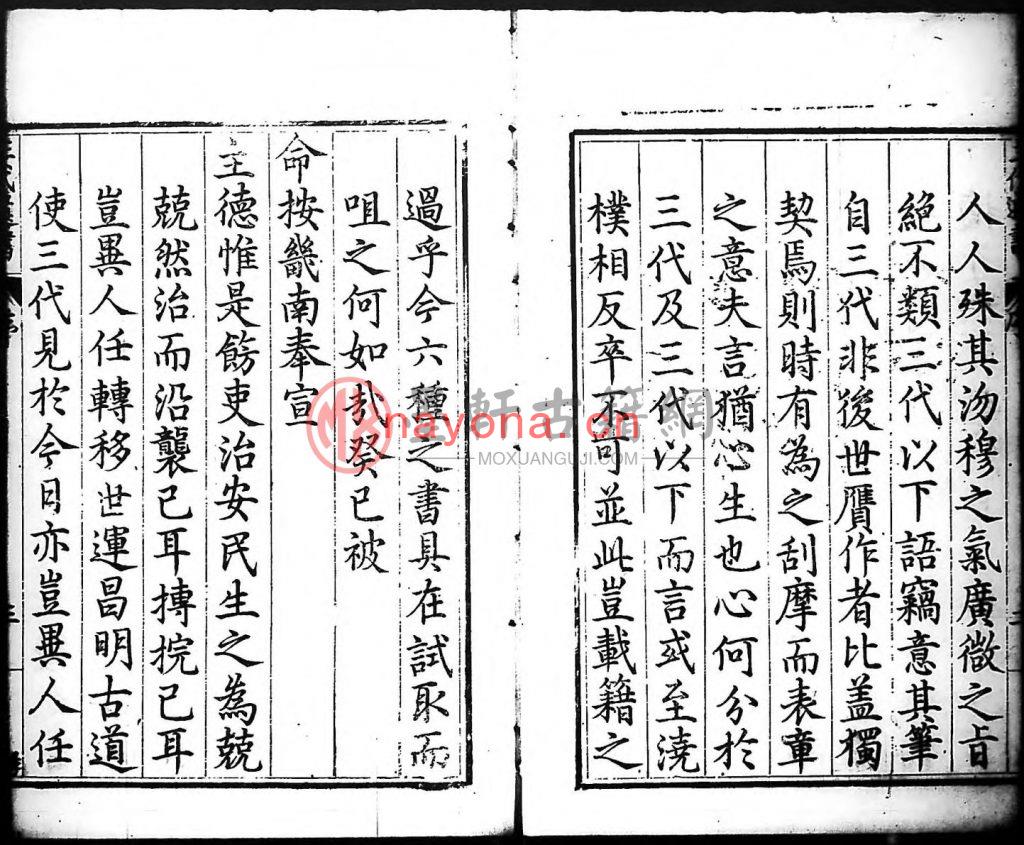 人人殊其沕穆之氣廣微之旨
絕不類三代以下語竊意其筆
自三代非後世贋作者比盖獨
契焉則時有為之刮摩而表章
之意夫言猶心生也心何分於
三代及三代以下而言或至澆
樸相反卒不可並此豈載籍之
過乎今六種之書具在試取而
咀之何如哉癸巳被
命按畿南奉宣
主德惟是飭吏治安民生之為兢
兢然治而沿襲已耳摶捖已耳
豈異人任轉移世運昌明古道
使三代見於今日亦豈異人任
墨軒古籍網
nayona.cn
MOXUANGUJI.COM